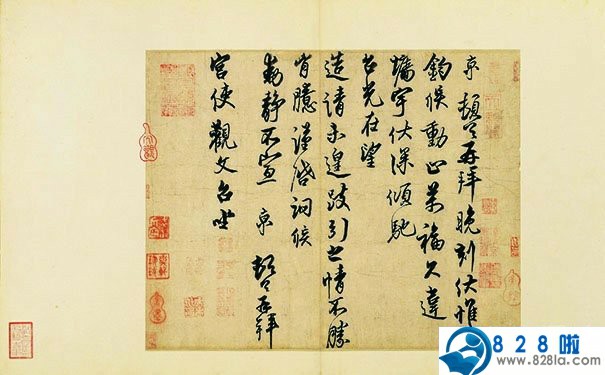 京 頓首再拜晚刻伏惟
鈞候動止萬福久違
牆宇伏深傾馳
台光在望
造請未遑跂引之情不勝
胷臆謹啓詞候
動靜不宣 京 頓首再拜
宮使觀文台坐
828啦
www.828la.com